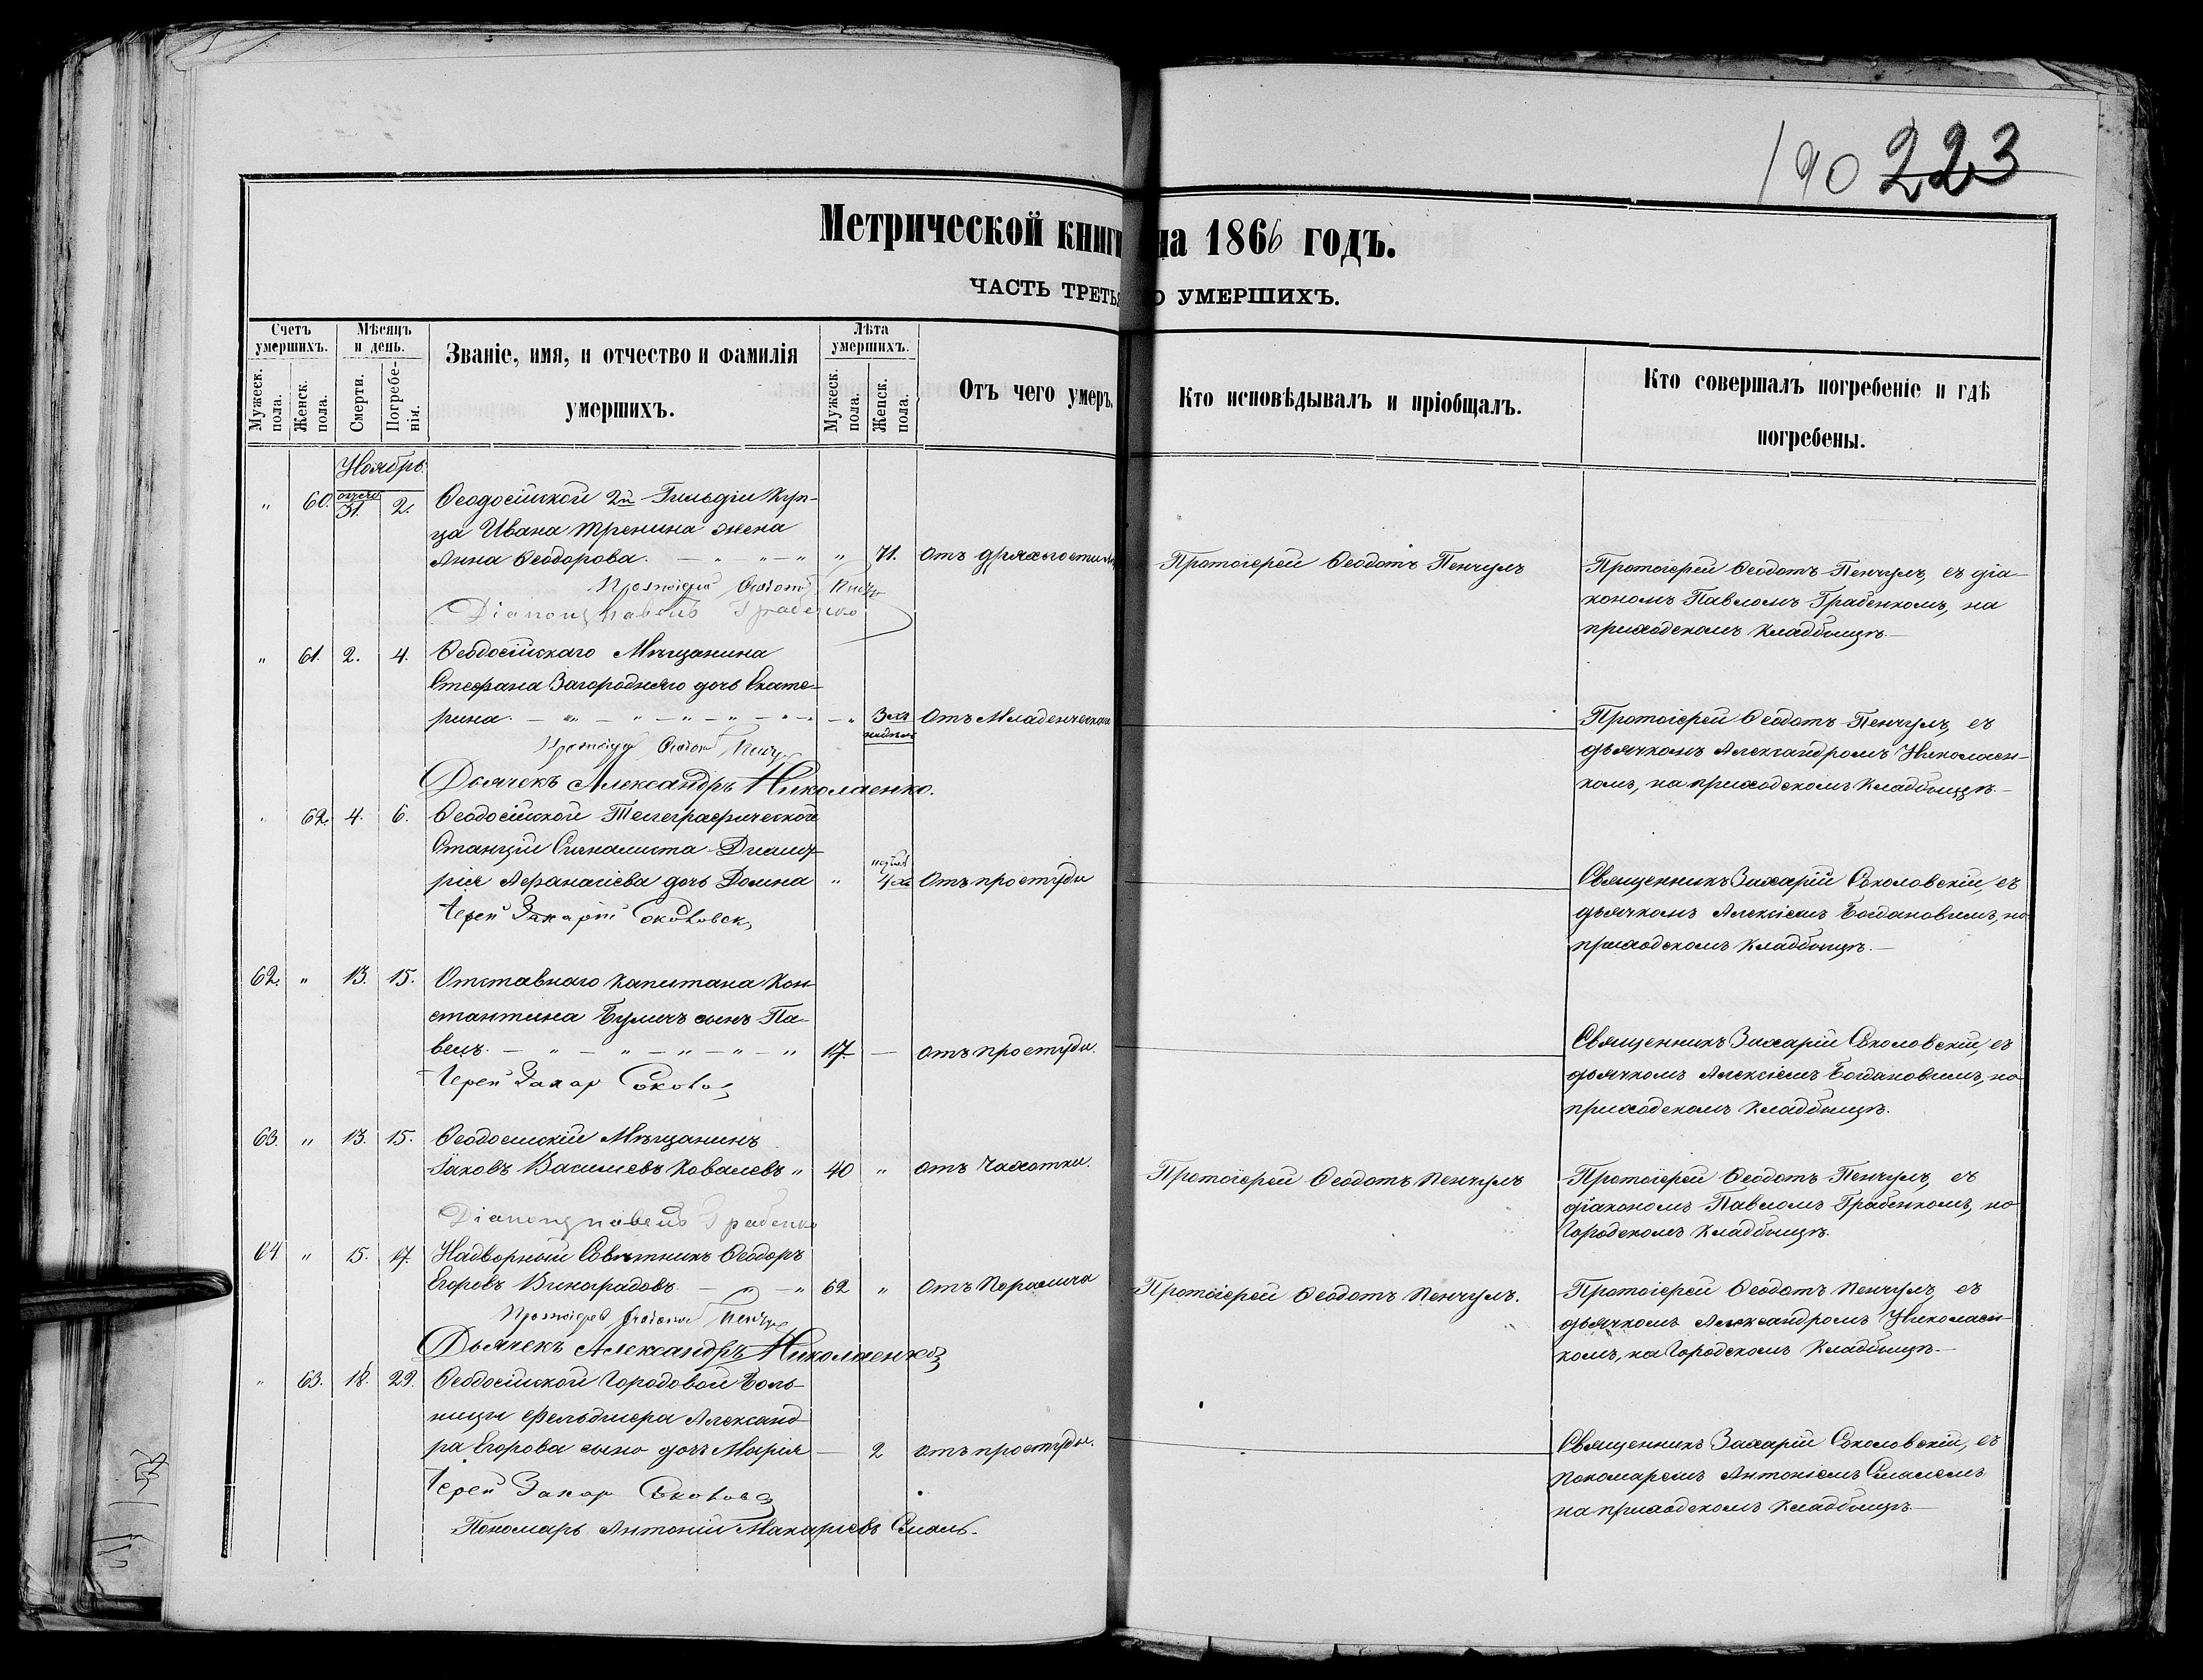 190 223
Метрической книги на 1866 годъ.
ЧАСТЬ ТРЕТЬЯ О УМЕРШИХЪ.
Счетъ умершихъ.
Мужеск. пола.
Женск. пола.
Мѣсяцъ и день.
Смерти.
Погребенія.
Званіе, имя, и отчество и фамилія
умершихъ.
Лѣта умершихъ.
Мужеск. пола.
Женск. пола.
Отъ чего умеръ.
Кто исповѣдывалъ и пріобщалъ.
Кто совершалъ погребеніе и гдѣ
погребены.
Ноябрь.
„ 60. 31. 2. Ѳеодосійской 2й Гильдіи Куп-
ца Ивана Тренина жена
Анна Ѳеодорова. „ 71. Отъ дряхлости
Протоіерей Ѳеодотъ Пенчулъ
Протоіерей Ѳеодотъ Пенчулъ, съ діа-
кономъ Павломъ Грабенкомъ, на
приходскомъ кладбищѣ.
Протоіерей Ѳеодотъ
Діаконъ Павелъ Грабенко
„ 61. 2. 4. Ѳеодосійскаго Мѣщанина
Стефана Загородняго дочь Екате-
рина. „ 3хъ недѣль Отъ Младенческой
Протоіерей Ѳеодотъ Пенчулъ, съ
дьячкомъ Александромъ Николаен-
комъ, на приходскомъ кладбищѣ.
Протоіерей Ѳеодотъ Пенчулъ
Дьячекъ Александръ Николаенко.
62. 4. 6. Ѳеодосійской Телеграфической
Станціи Сигналиста Димит-
рія Афанасіева дочь Домна „ недѣль 4хъ Отъ простуды
Священникъ Захарій Соколовскій, съ
дьячкомъ Алексіемъ Богдановымъ, на
приходскомъ кладбищѣ.
Іерей Захарій Соколовск
62. „ 13. 15. Отставнаго Капитана Кон-
стантина Булича сынъ Па-
велъ. 17. — отъ простуды.
Священникъ Захарій Соколовскій, съ
дьячкомъ Алексіемъ Богдановымъ, на
приходскомъ кладбищѣ.
Іерей Захар
63. „ 13. 15. Ѳеодосійскій Мѣщанинъ
Іаковъ Васильевъ Ковалевъ „ 40 „ отъ Чахотки.
Протоіерей Ѳеодотъ Пенчулъ
Протоіерей Ѳеодотъ Пенчулъ, съ
діакономъ Павломъ Грабенкомъ, на
Городскомъ кладбищѣ.
Діаконъ Павелъ Грабенко
64 „ 15. 17. Надворный Совѣтникъ Ѳеодоръ
Егоровъ Виноградовъ. „ 62 „ Отъ Паралича
Протоіерей Ѳеодотъ Пенчулъ.
Протоіерей Ѳеодотъ Пенчулъ, съ
дьячкомъ Александромъ Николаен-
комъ, на Городскомъ кладбищѣ.
Протоіерей Ѳеодотъ Пенчулъ
Дьячекъ Александръ Николаенко
„ 63. 18. 22. Ѳеодосійской Городовой Боль-
ницы фельдшера Александ-
ра Егорова дочь Марія — 2 отъ простуды.
Священникъ Захарій Соколовскій, съ
пономаремъ Антоніемъ Смалемъ
на приходскомъ кладбищѣ.
Іерей Захар
Пономарь Антоній Макаріевъ Смаль.